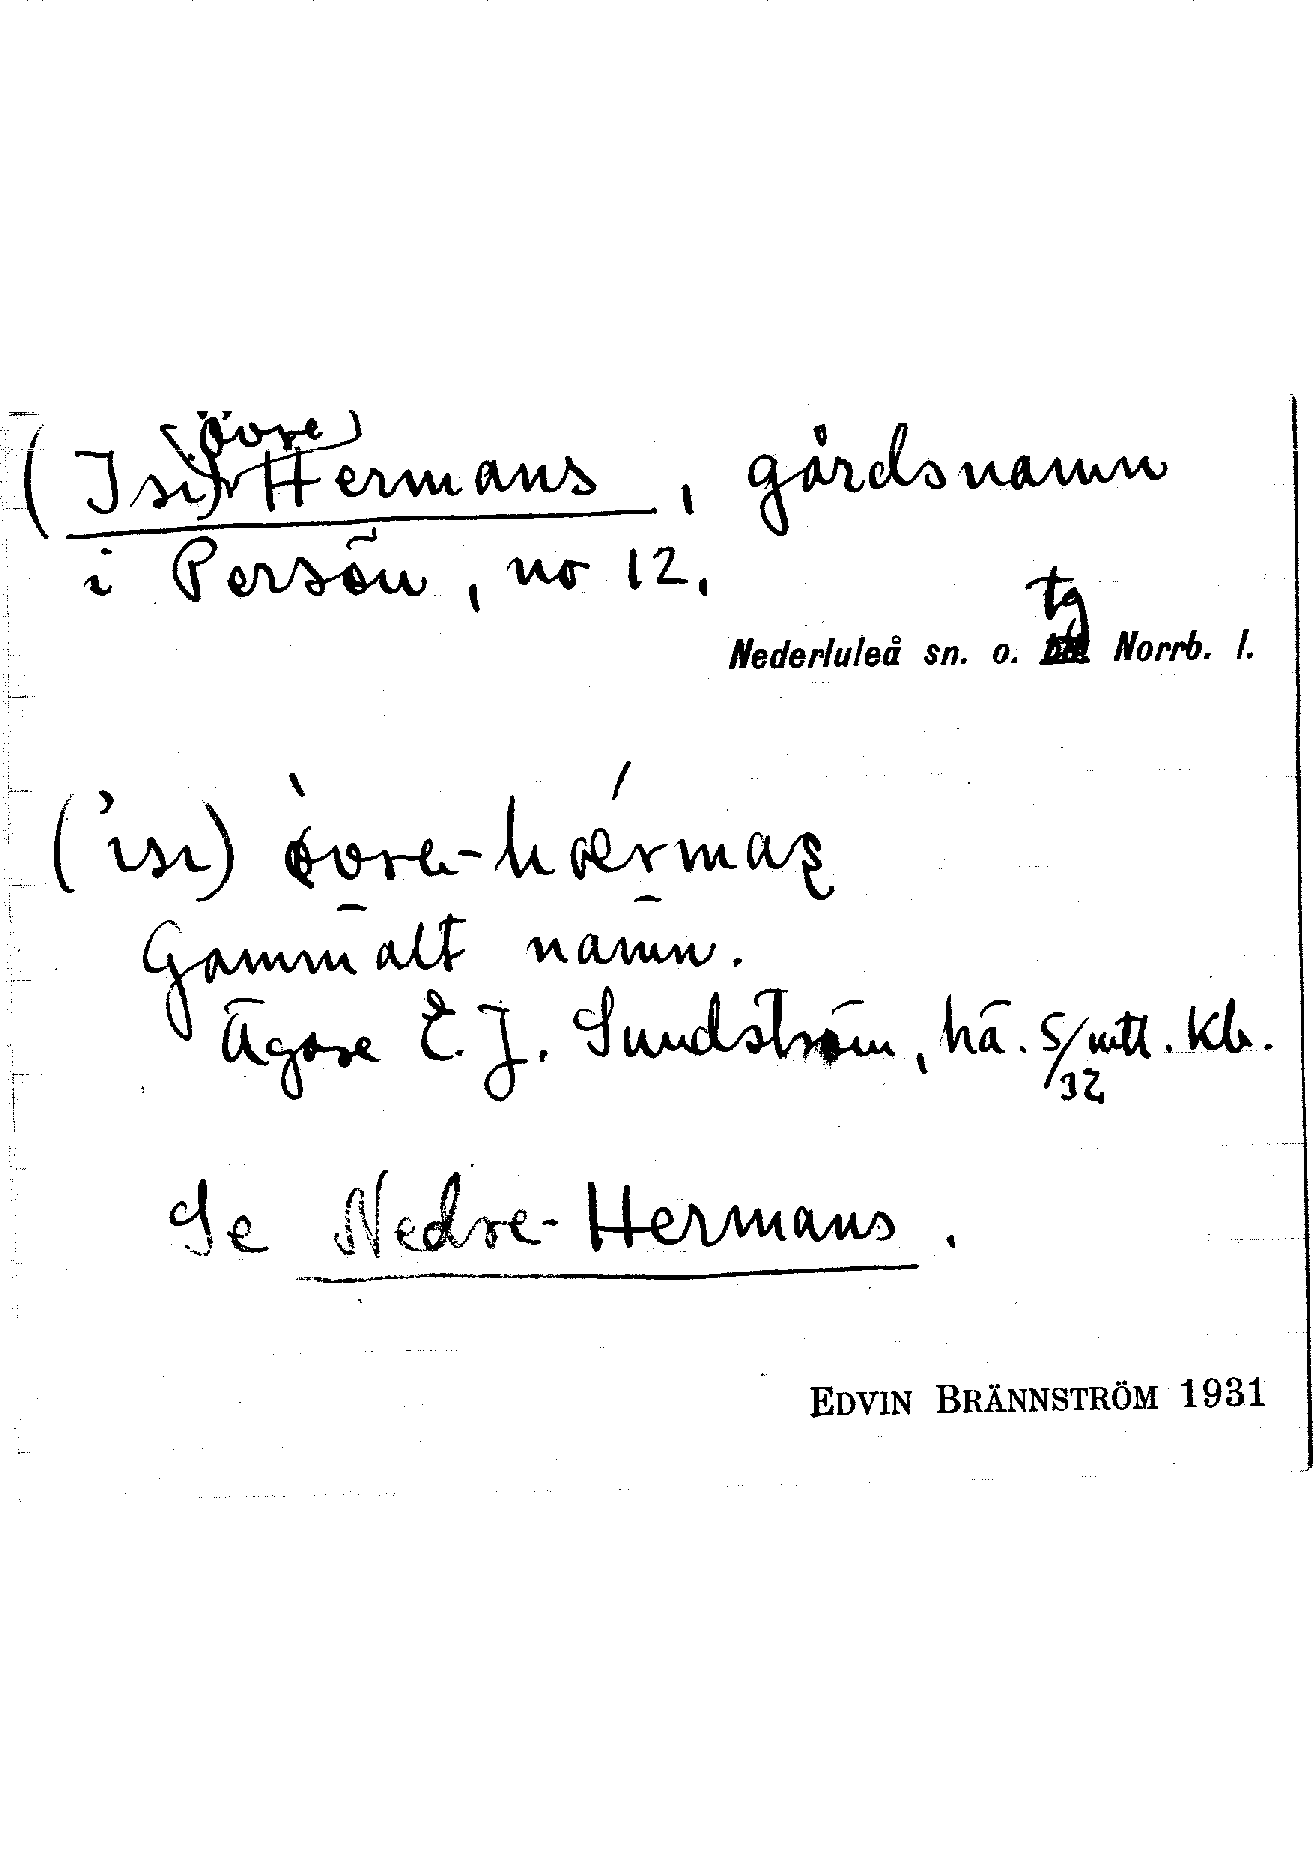 (Isi) Övre Hermans, gårdsnamn
i Persön, no 12.
tg
Nederluleå sn. o. Norrb. l.
(’ısı) òvre-hǽrmaş
Gammalt namn.
Ägare E. J. Sundström, hä. 5/32 mtl. Kb.
Se Nedre-Hermans.
EDVIN BRÄNNSTRÖM 1931